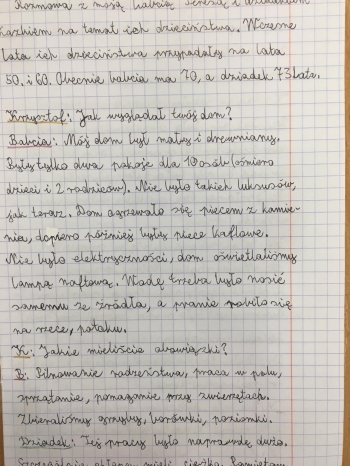 Rozmowa z moją babcią Teresą i dziadkiem
Kazikiem na temat ich dzieciństwa. Wczesne
lata ich dzieciństwa przypadały na lata
50. i 60. Obecnie babcia ma 70, a dziadek 73 lata.
Krzysztof: Jak wyglądał twój dom?
Babcia: Mój dom był mały i drewniany.
Były tylko dwa pokoje dla 10 osób (ośmioro
dzieci i 2 rodziców). Nie było takich luksusów,
jak teraz. Dom ogrzewało się piecem z kamie-
nia, dopiero później były piece kaflowe.
Nie było elektryczności, dom oświetlaliśmy
lampą naftową. Wodę trzeba było nosić
samemu ze źródła, a pranie robiło się
na rzece, potoku.
K: Jakie mieliście obowiązki?
B: Pilnowanie rodzeństwa, praca w polu,
sprzątanie, pomaganie przy zwierzętach.
Zbieraliśmy grzyby, borówki, poziomki.
Dziadek: Tej pracy było naprawdę dużo.
Szczególnie chłopcy mieli ciężko. Pamiętam